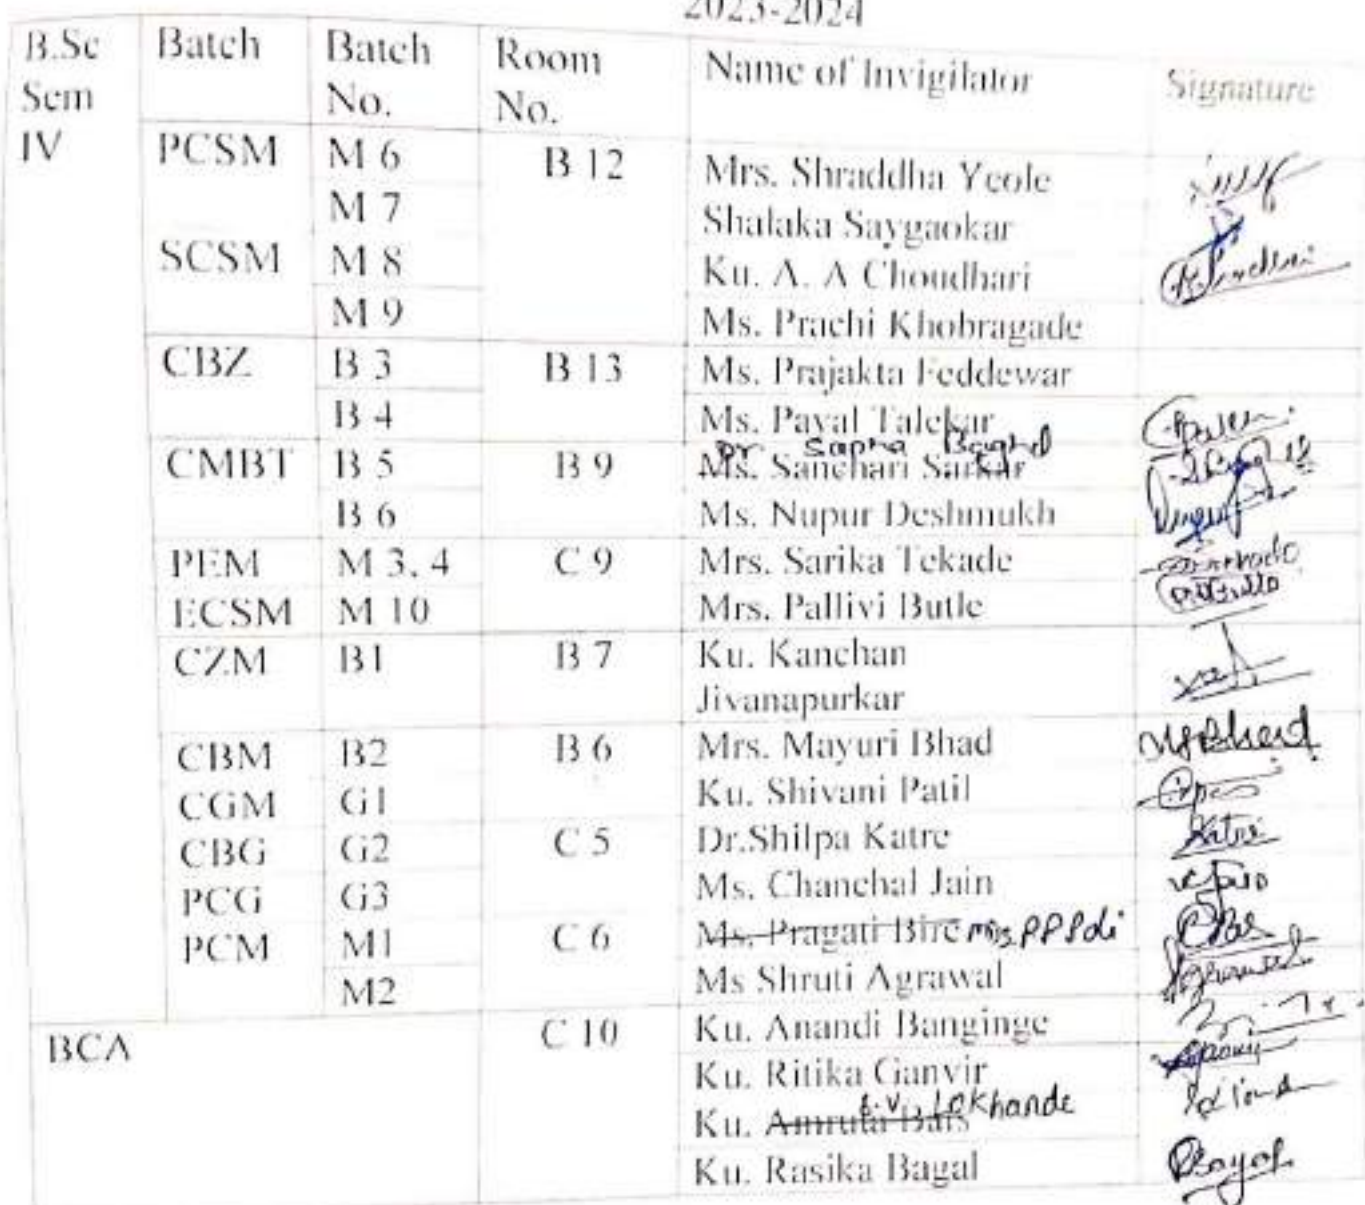 2023-2024
B.Sc Sem IV Batch Batch No. Room No. Name of Invigilator Signature
PCSM M 6 B 12 Mrs. Shraddha Yeole
M 7 Shalaka Saygaokar
SCSM M 8 Ku. A. A Choudhari
M 9 Ms. Prachi Khobragade
CBZ B 3 B 13 Ms. Prajakta Feddewar
B 4 Ms. Payal Talekar
Dr. Sapna Baghel
CMBT B 5 B 9 Ms. Sanchari Sarkar
B 6 Ms. Nupur Deshmukh
PEM M 3, 4 C 9 Mrs. Sarika Tekade
ECSM M 10 Mrs. Pallivi Butle
CZM B1 B 7 Ku. Kanchan
Jivanapurkar
CBM B2 B 6 Mrs. Mayuri Bhad
CGM G1 Ku. Shivani Patil
CBG G2 C 5 Dr.Shilpa Katre Katre
PCG G3 Ms. Chanchal Jain
PCM M1 C 6 Ms. Pragati Bire
M2 Ms Shruti Agrawal
BCA C 10 Ku. Anandi Banginge
Ku. Ritika Ganvir
Ku. Amruta Bais Lokhande
Ku. Rasika Bagal